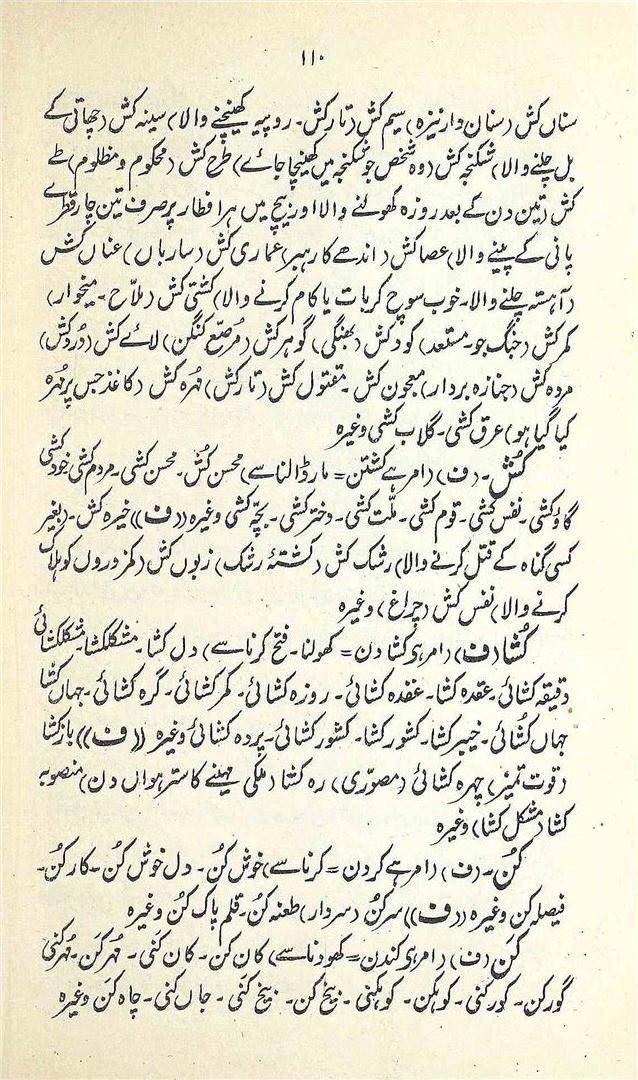 ۱۱۰
سناں کش (سنان دار نیزہ) سیم کش (تارکش۔ روپیہ کھینچنے والا) سینہ کش (چھاتی کے
بل چلنے والا) شکنجہ کش (وہ شخص جو شکنجہ میں کھینچا جائے) طرح کش (محکوم و مظلوم) طے
کش (تین دن کے بعد روزہ کھولنے والا اور بیچ میں ہر افطار پر صرف تین چار قطرے
پانی کے پینے والا) عصا کش (اندھے کا رہبر) عماری کش (سارباں) عناں کش
(آہستہ چلنے والا۔ خوب سوچ کر بات یا کام کرنے والا) کشتی کش (ملاح۔ میخوار)
کمر کش (جنگ جو۔ مستعد) کود کش (بھنگی) گوہر کش (مرصّع کنگن) لائے کش (دُرد کش)
مردہ کش (جنازہ بردار) معجون کش۔ مفتول کش (تارکش) مُہرہ کش (کاغذ جس پر مُہرہ
کیا گیا ہو) عرق کشی۔ گلاب کشی وغیرہ
کُش۔ (ف) (امر ہے کشتن = مار ڈالنا سے) محسن کُش۔ محسن کشی۔ مردم کشی خود کشی
گاؤ کشی۔ نفس کشی۔ قوم کشی۔ ملّت کشی۔ دختر کشی۔ بچّہ کشی وغیرہ ((ف)) خیرہ کش۔ (بغیر
کسی گناہ کے قتل کرنے والا) رشک کش (کشتۂ رشک) زبوں کش (کمزوروں کو ہلاک
کرنے والا) نفس کش (چراغ) وغیرہ
کُشا (ف) (امر ہو کشادن = کھولنا۔ فتح کرنا سے) دل کشا۔ مشکلکشا۔ مشکلکشائی
دقیقہ کشائی۔ عقدہ کشا۔ عقدہ کشائی۔ روزہ کشائی۔ کمر کشائی۔ گرہ کشائی۔ جہاں کشا
جہاں کشائی۔ خیبر کشا۔ کشور کشا۔ کشور کشائی۔ پردہ کشائی وغیرہ ((ف)) باز کشا
(قوت تمیز) چہرہ کشائی (مصوّری) رہ کشا (ملکی مہینے کا سترھواں دن) منصوبہ
کشا (مشکل کشا) وغیرہ
کُن۔ (ف) (امر ہے کردن = کرنا سے) خوش کُن۔ دل خوش کُن۔ کار کُن۔
فیصلہ کن وغیرہ ((ف)) سر کُن (سردار) طعنہ کُن۔ قلم پاک کُن وغیرہ
کَن (ف) (امر ہو کندن = کھودنا سے) کان کن۔ کان کَنی۔ مُہر کَن۔ مُہر کَنی
گورکن۔ گورکنی۔ کوہکن۔ کوہکنی۔ بیخ کن۔ بیخ کَنی۔ جاں کنی۔ چاہ کَن وغیرہ